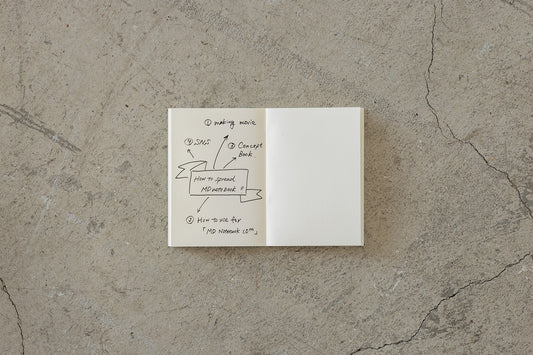 ① making movie
④ SNS
③ Concept
Book
How to spread
MD notebook ?
② How to use for
「MD Notebook 10th」